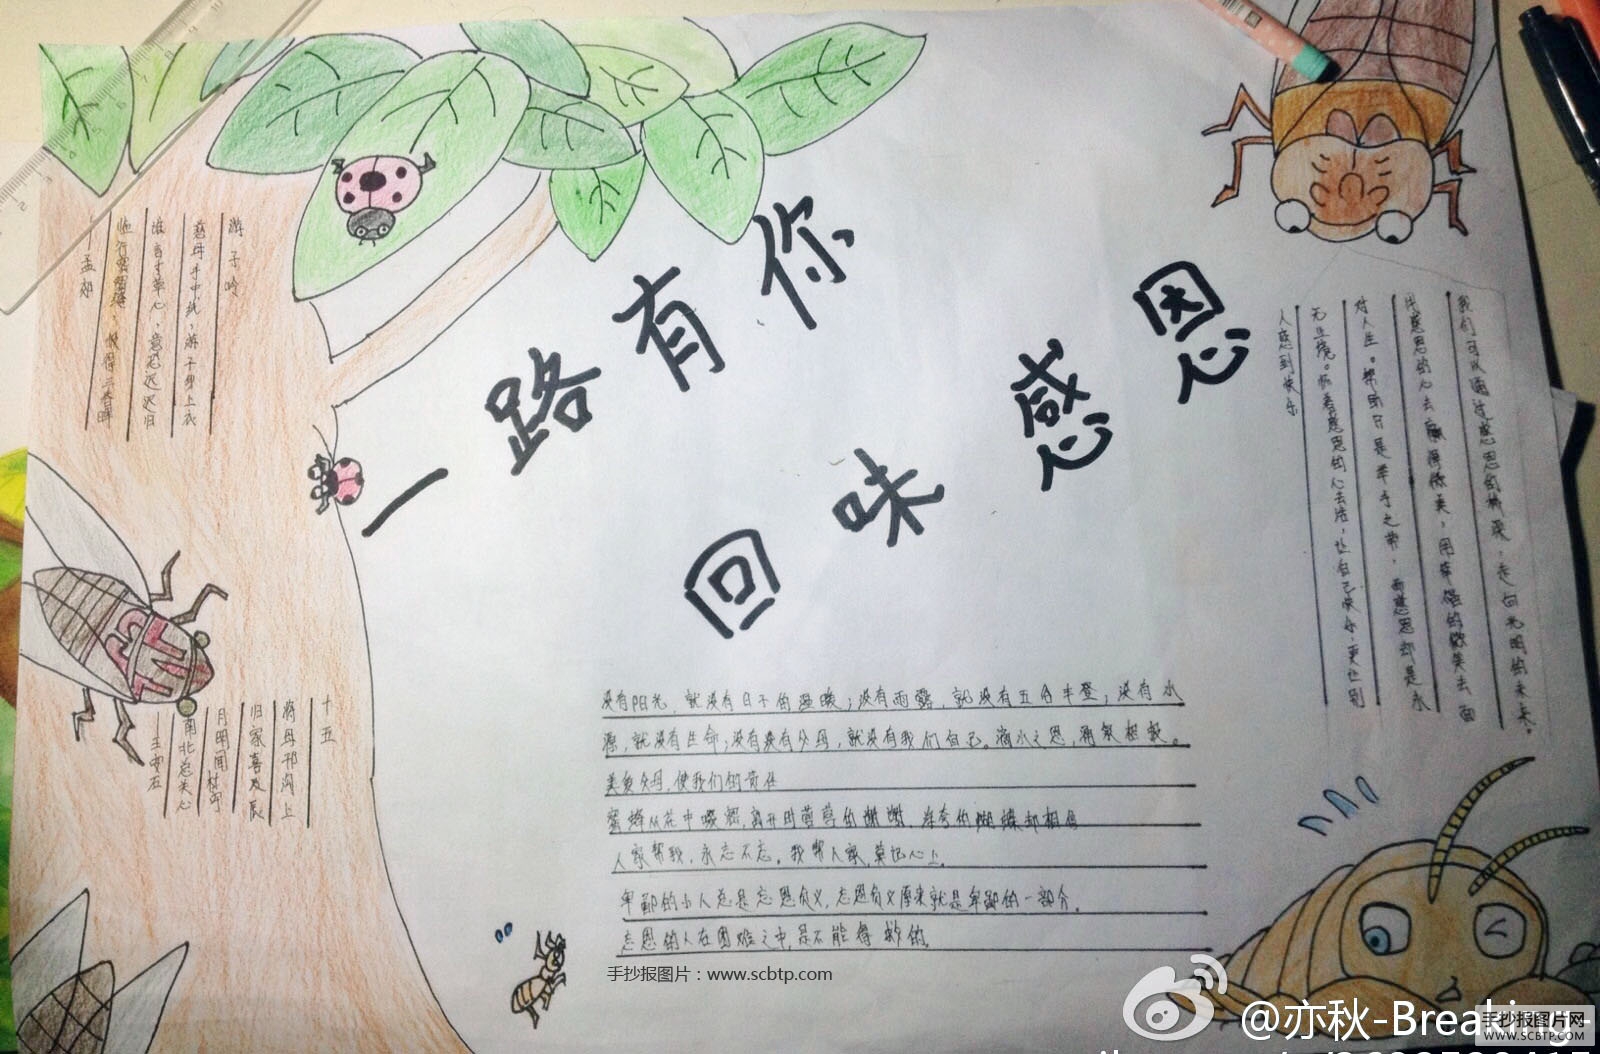 一路有你
回味感恩
游子吟
慈母手中线,游子身上衣
谁言寸草心,意恐迟迟归
临行密密缝,报得三春晖
—孟郊
十五
将母邗沟上
归家喜
月明闻
南北总关心
—王安石
我们可以通过感恩的桥梁,走向光明的未来。
代感恩的心去用幸福的微笑去面
对人生。帮助只是举手之带,而感恩却是永
无止境。怀着感恩的心去活,让自己快乐,更让别
人感到快乐
没有阳光,就没有日子的温暖;没有雨露,就没有五谷丰登;没有水
源,就没有生命;没有没有父母,就没有我们自己。滴水之恩,涌泉相报。
父母,使我们的责任
蜜蜂从花中啜蜜,离开时营营的谢谢,浮夸的蝴蝶却相信
人家帮我,永忘不忘。我帮人家,莫记心上。
卑鄙的小人总是忘恩负义,忘恩负义原来就是卑鄙的一部分。
忘恩的人在困难之中,是不能得救的。
手抄报图片:www.scbtp.com
@亦秋-Breaking-
手抄报图片网
WWW.SCBTP.COM